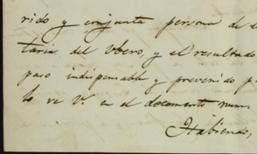 rido y conjunta persona de e
taria del Vbero, y el resultado
paso indispensable y prevenido p
lo ve V. en el documento num.
Habiendo,